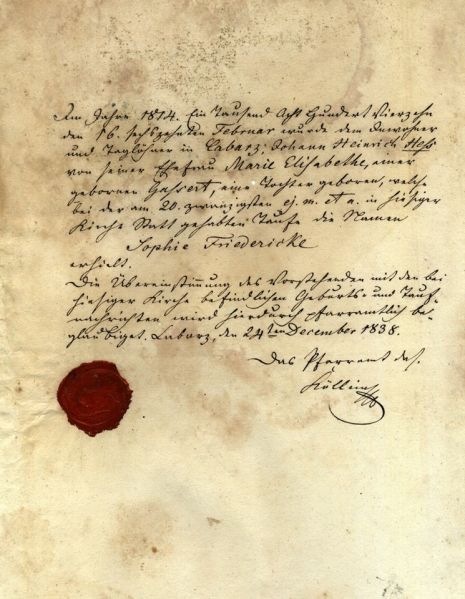 Im Jahre 1814. Ein Tausend Acht Hundert Vierzehn
den 16. sechszehnten Februar wurde dem Inwohner
und Taglöhner in Cabarz, Johann Heinrich Heß
von seiner Ehefrau Marie Elisabethe, einer
gebornen Gassert, eine Tochter geboren, welche
bei der am 20. zwanzigsten ej. m. et a. in hiesiger
Kirche Statt gehabten Taufe die Namen
Sophie Friedericke
erhielt.
Die Übereinstimmung des Vorstehenden mit den bei
hiesiger Kirche befindlichen Geburts- und Tauf-
nachrichten wird hierdurch pfarramtlich be-
glaubiget. Labarz, den 24ten December 1838.
Das Pfarramt das.